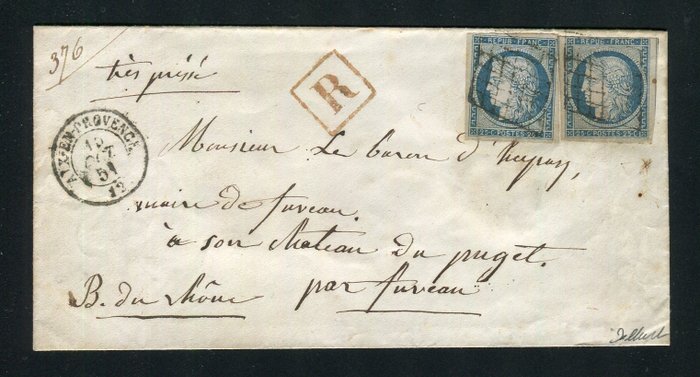 376
REPUB. FRANC. REPUB. FRANC.
25 C. POSTES 25 C. 25 C. POSTES 25 C.
très pressé
R
AIX-EN-PROVENCE
10
51
12
Monsieur Le baron
maire de fuveau.
à son chateau du puget.
B. du rhône par fuveau